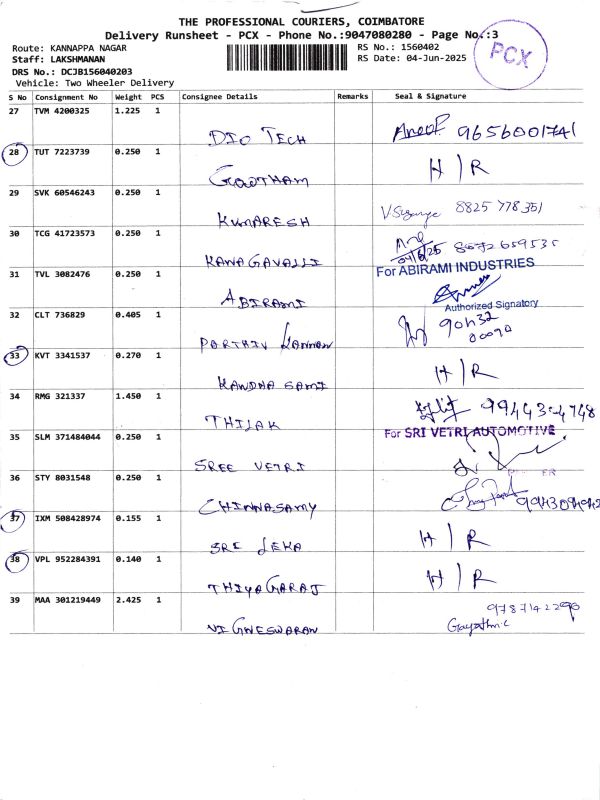 THE PROFESSIONAL COURIERS, COIMBATORE
Delivery Runsheet - PCX - Phone No.:9047080280 - Page No.:3
PCX
Route: KANNAPPA NAGAR
RS No.: 1560402
Staff: LAKSHMANAN
RS Date: 04-Jun-2025
DRS No.: DCJB156040203
Vehicle: Two Wheeler Delivery
S No Consignment No Weight PCS Consignee Details Remarks Seal & Signature
27 TVM 4200325 1.225 1
DIO TECH 9656001741
28 TUT 7223739 0.250 1
GOWTHAM H/R
29 SVK 60546243 0.250 1
KUMARESH 8825 778351
30 TCG 41723573 0.250 1
KANAGAVALLI 04/6/25
31 TVL 3082476 0.250 1
For ABIRAMI INDUSTRIES
ABIRAMI
Authorized Signatory
32 CLT 736829 0.405 1
PARTHIV KANNAN
33 KVT 3341537 0.270 1
KANDHA SAMI H/R
34 RMG 321337 1.450 1
THILAK
35 SLM 371484044 0.250 1
For SRI VETRI AUTOMOTIVE
SREE VETRI
36 STY 8031548 0.250 1
CHINNASAMY
37 IXM 508428974 0.155 1
SRI LEKA H/R
38 VPL 952284391 0.140 1
THIYAGARAJ H/R
39 MAA 301219449 2.425 1
VIGNESWARAN Gayathri